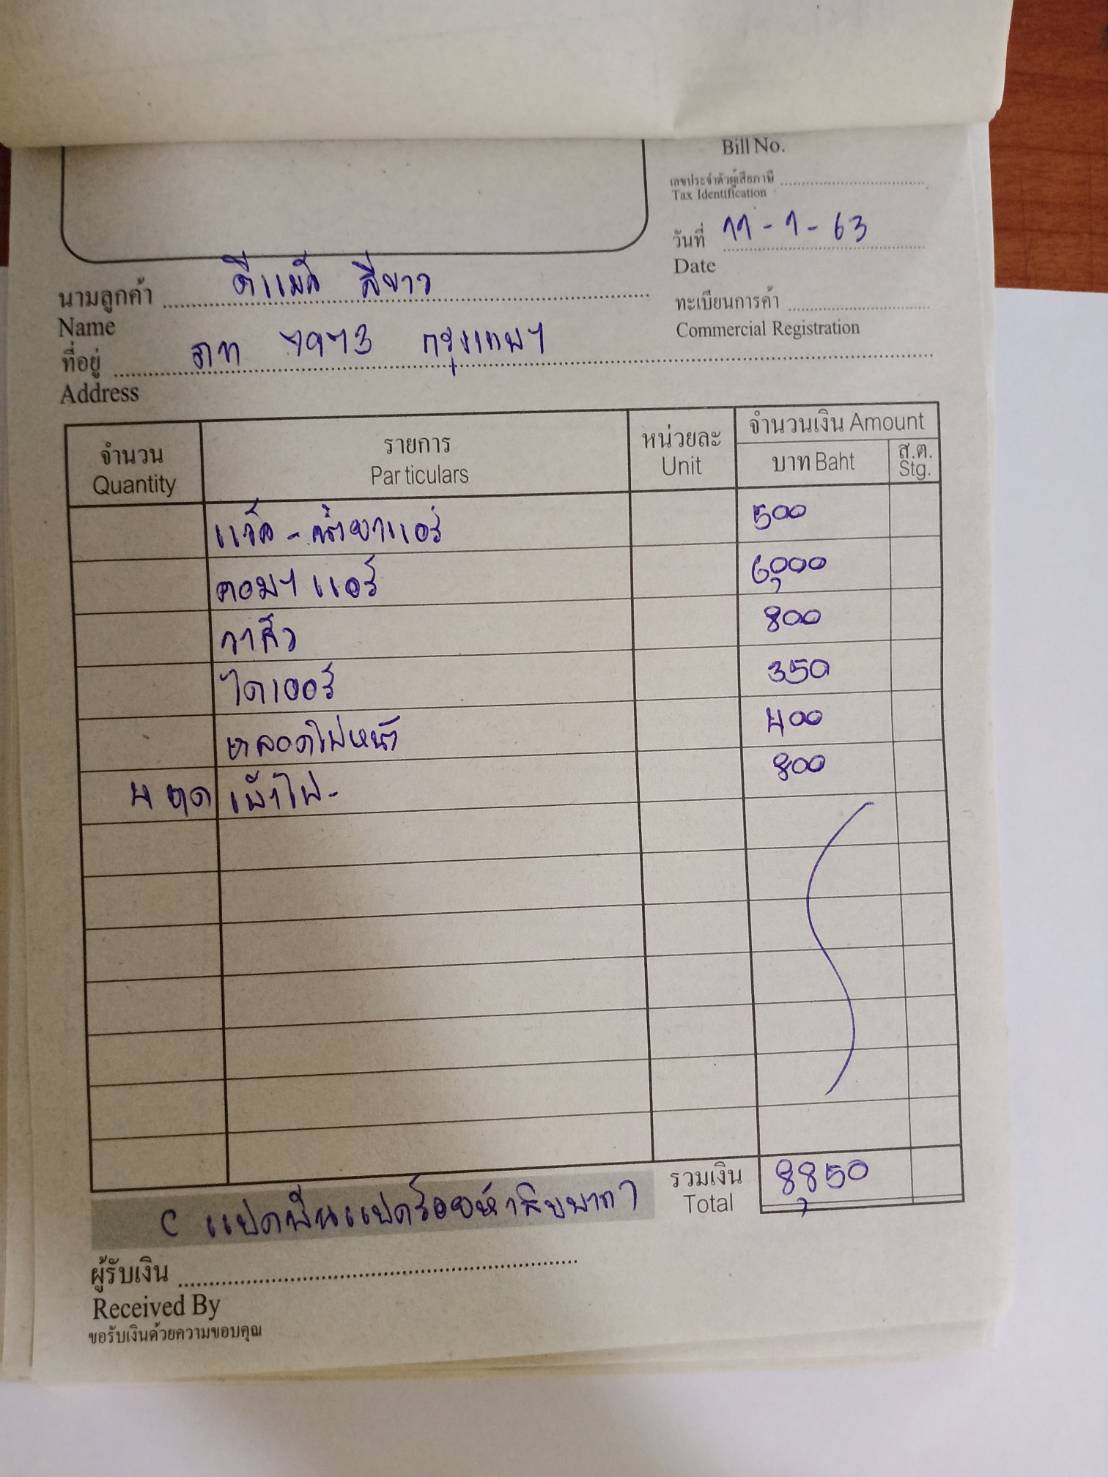 Bill No.
เลขประจำตัวผู้เสียภาษี
Tax Identification
วันที่ 11-1-63
Date
นามลูกค้า ดีแม็ค สีขาว
Name
ทะเบียนการค้า
Commercial Registration
ที่อยู่ ฎท 7973 กรุงเทพฯ
Address
จำนวน รายการ หน่วยละ จำนวนเงิน Amount
Quantity Particulars Unit บาท Baht ส.ต. Stg.
แว็ค - น้ำยาแอร์ 500
คอมฯ แอร์ 6,000
800
ไดเออร์ 350
หลอดไฟหน้า 400
4 เบ้าไฟ- 800
รวมเงิน 8,850
Total
( แปดพันแปดร้อยห้าสิบบาท )
ผู้รับเงิน
Received By
ขอรับเงินด้วยความขอบคุณ